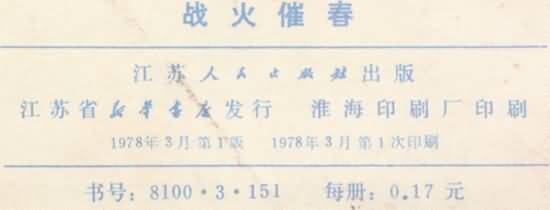 战火催春
江苏人民出版社出版
江苏省新华书店发行 淮海印刷厂印刷
1978年3月第1版 1978年3月第1次印刷
书号：8100·3·151 每册：0.17元